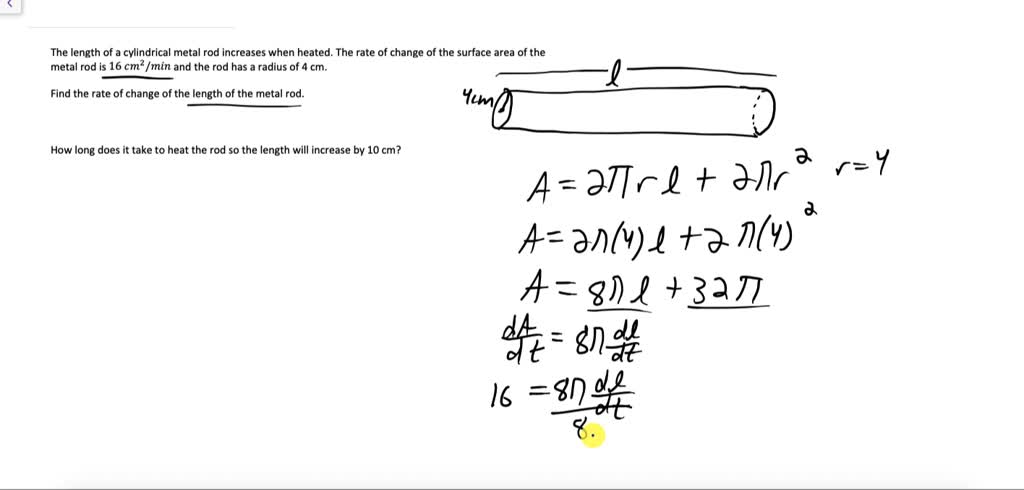 The length of a cylindrical metal rod increases when heated. The rate of change of the surface area of the
metal rod is 16 cm²/min and the rod has a radius of 4 cm.
Find the rate of change of the length of the metal rod.
How long does it take to heat the rod so the length will increase by 10 cm?
l
4cm
A = 2πrl + 2πr² r=4
A = 2π(4)l + 2π(4)²
A = 8πl + 32π
dA/dt = 8π dl/dt
16 = 8π dl/dt
8.